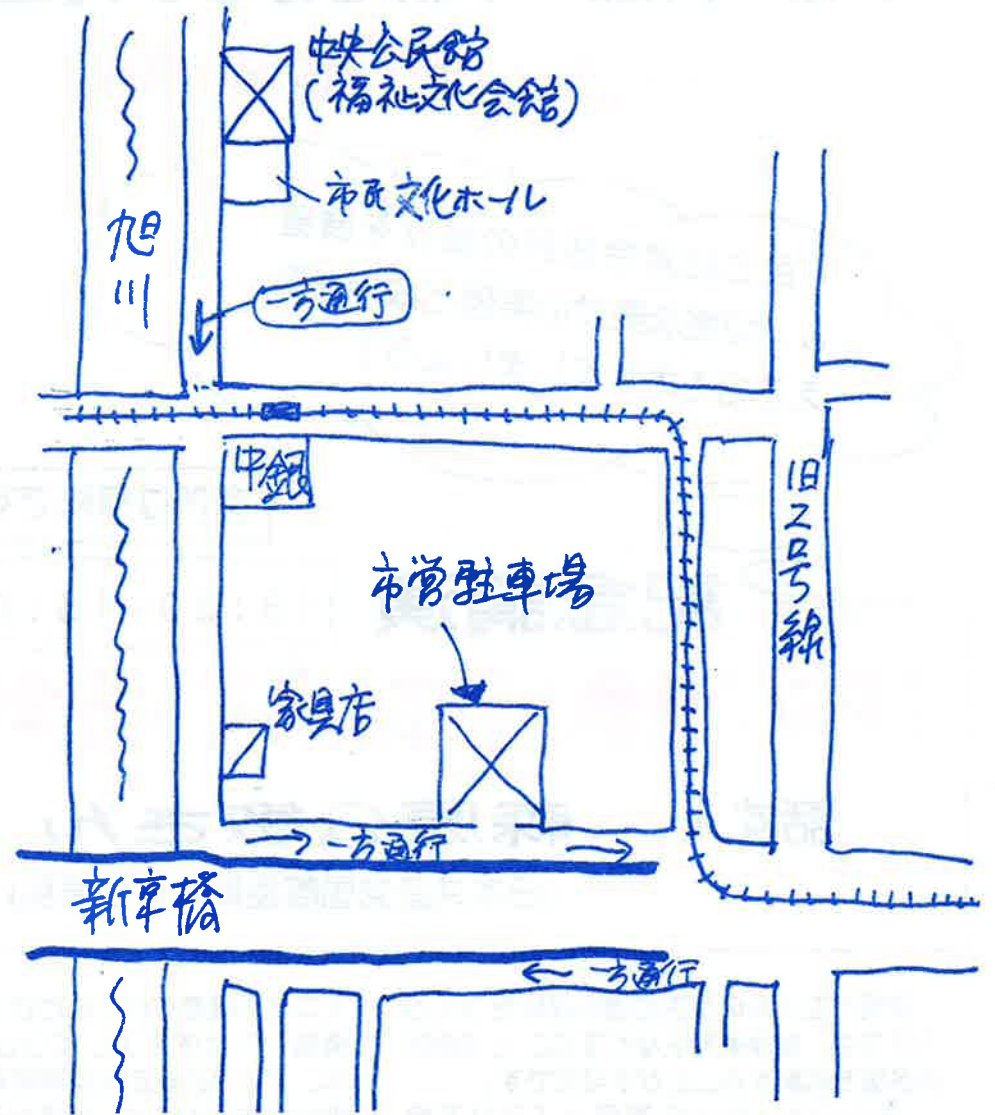 中央公民館
(福祉文化会館)
市民文化ホール
旭川
一方通行
中銀
旧2号線
市営駐車場
家具店
→一方通行→
新京橋
←一方通行